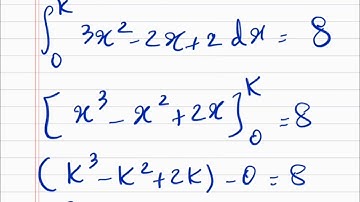 ∫₀ᴷ 3x² - 2x + 2 dx = 8
[x³ - x² + 2x]₀ᴷ = 8
(K³ - K² + 2K) - 0 = 8